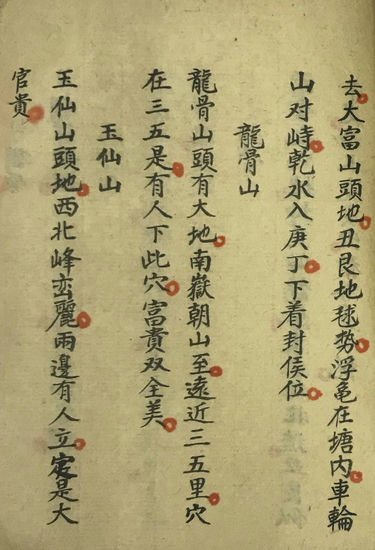 去大富山頭地丑艮地毬勢浮黾在塘内車輪
山对峙乾水入庚丁下着封侯位
龍骨山
龍骨山頭有大地南嶽朝山至遠近三五里穴
在三五是有人下此穴富貴双全美
玉仙山
玉仙山頭地西北峰峦麗兩邊有人立定是大
官貴